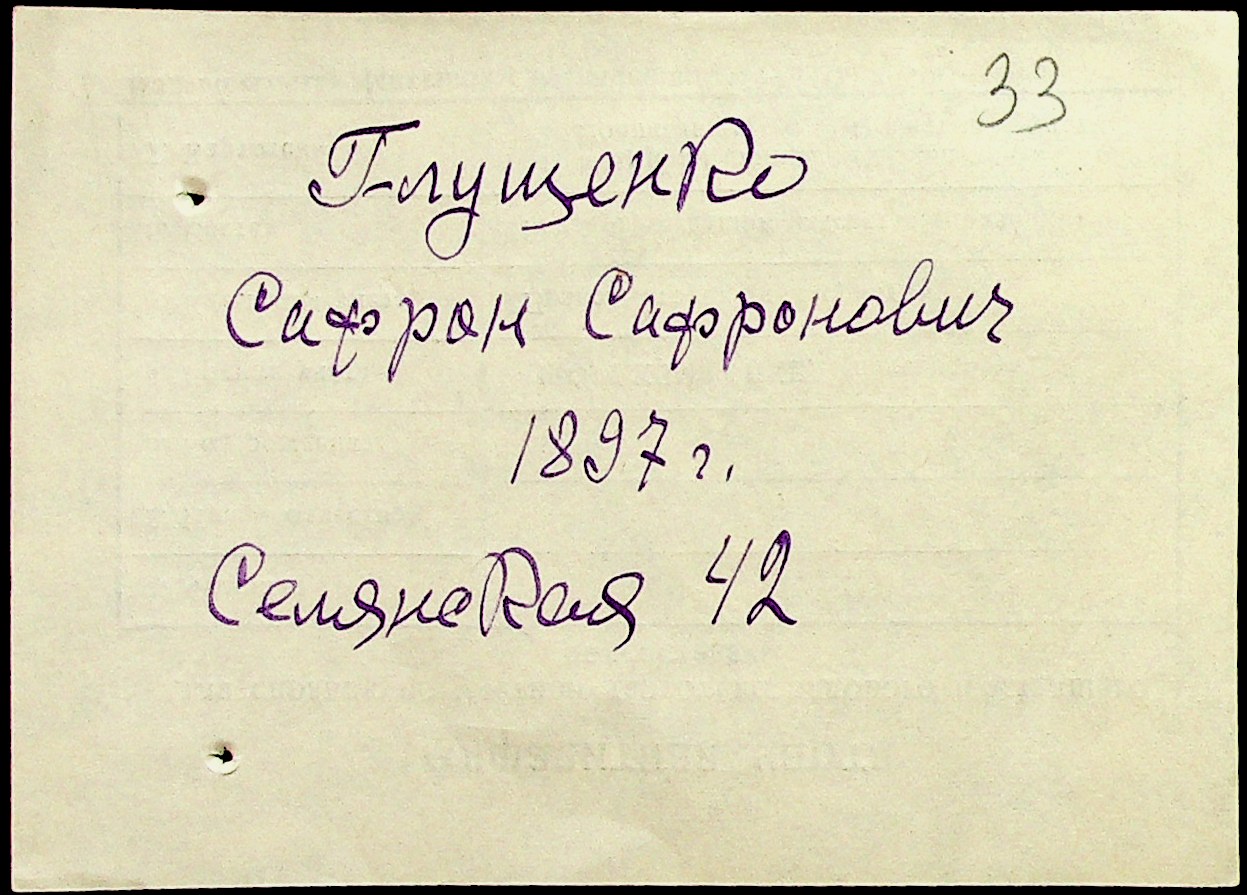 33
Глущенко
Сафрон Сафронович
1897 г.
Селянская 42